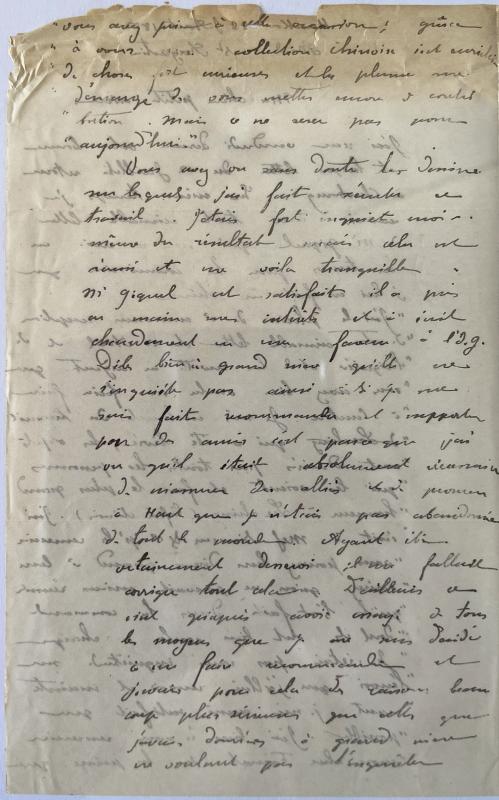 "vous avez puisé à cette occasion ; grâce
"à vous collection chinoise est enrichie
"de choses fort curieuses et la plume me
"démange de vous mettre encore à contri
"bution. Mais ce ne sera pas pour
"aujourd'hui"
Vous avez vu sans doute les dessins
sur lesquels j'ai fait exécuter ce
travail. J'étais fort inquiet moi-
même du résultat mais cela est
réussi et me voila tranquille.
M. Giquel est satisfait il a pris
en main mes intérêts et a écrit
chaudement en ma faveur à l'I.G.
Dites bien à grand mère qu'elle ne
s'inquiète pas ainsi si je me
suis fait recommander et supporter
par des amis c'est parce que j'ai
vu qu'il était absolument nécessaire
de m'assurer des alliés et de prouver
à Hart que je n'étais pas abandonné
de tout le monde. Ayant été
certainement desservi il me fallait
corriger tout cela. D'ailleurs ce
n'est qu'après avoir essayé de tous
les moyens que je me suis décidé
à me faire recommander et
j'avais pour cela des raisons beau
coup plus sérieuses que celles que
j'avais données à grand mère
ne voulant pas l'inquiéter